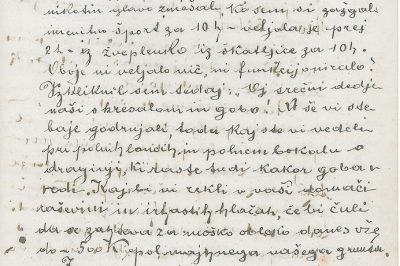 nikotin glavo zmešal, ko sem si zažgal
imenitni šport za 10 h – veljala je prej
2 h – iz žveplenko iz škatljice za 10 h.
Oboje ni veljalo nič, ni funkcijoniralo!
Vzkliknil sem tedaj: Oj srečni dedje
naši s kresalom in gobo! A še vi ste
baje godrnjali tedaj, kaj ste vi vedeli
pri polnih loncih in polnem bokalu o
draginji, ki raste tudi kakor goba v
vodi. Kaj bi vi rekli v vaši domači
raševini in irhastih hlačah, če bi čuli
da se zahteva za moško obleko danes vže
do – 500 K, pol majhnega vašega grunta.